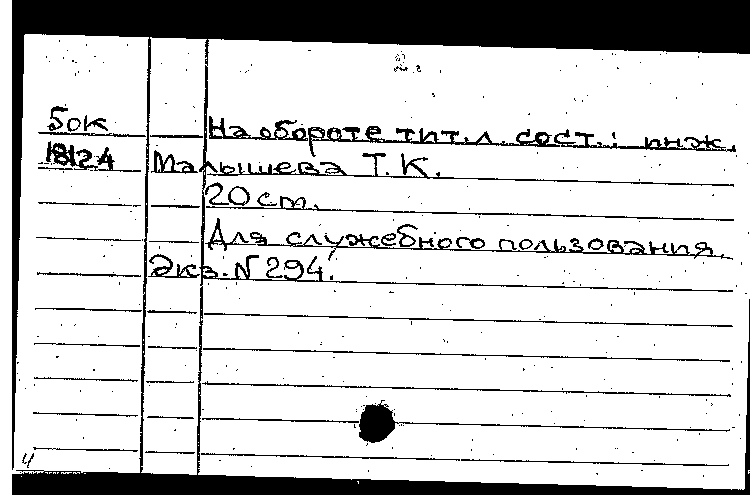 2.
Бок На обороте тит.л. сост.: инж.
18124 Малышева Т.К.
20 см.
Для служебного пользования.
Экз. N 294.
ч